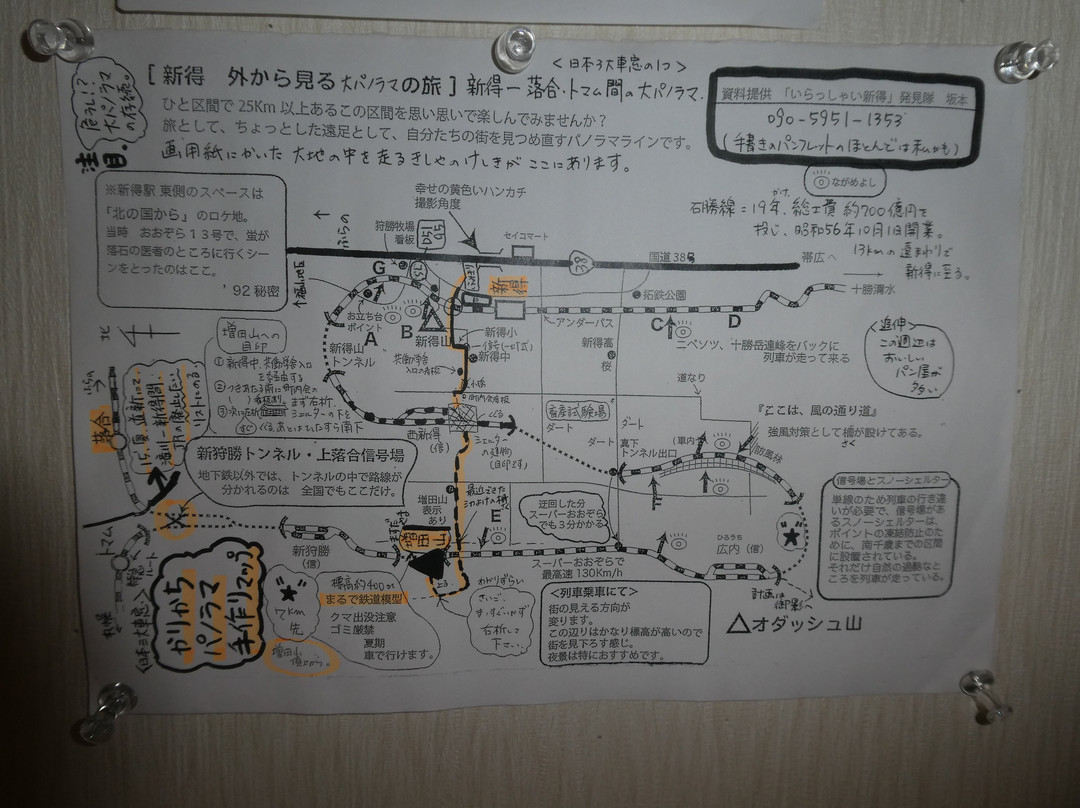 危うし!?
大パノラマ
の存続。
注目.
<日本3大車窓の1つ>
[ 新得 外から見る 大パノラマの旅 ] 新得ー落合・トマム間の大パノラマ.
ひと区間で 25Km 以上あるこの区間を思い思いで楽しんでみませんか?
旅として、ちょっとした遠足として、自分たちの街を見つめ直すパノラマラインです。
画用紙にかいた 大地の中を走るきしゃのけしきがここにあります。
資料提供 「いらっしゃい新得」発見隊 坂本
090-5951-1353
(手書きのパンフレットのほとんどは私かも)
ながめよし
石勝線=19年かけ、総工費 約700億円を
投じ、昭和56年10月1日開業。
13kmの遠まわりで
新得に至る。
※新得駅 東側のスペースは
「北の国から」のロケ地。
当時 おおぞら13号で、蛍が
落石の医者のところに行くシー
ンをとったのはここ。
'92 秘密
幸せの黄色いハンカチ
撮影角度
狩勝牧場
看板
D51
95
ふらの
セイコマート
38
国道 38号
帯広へ
十勝清水
新得
拓鉄公園
G
お立ち台
ポイント
A
B
新得山
新得山
トンネル
新得小
新得中
アンダーパス
新得高
桜
C
D
ニペソツ、十勝岳連峰をバックに
列車が走って来る
この週辺は
おいしい
パン屋が
多い
道なり
増田山への
目印
西新得
(信)
畜産試験場
ダート
ダート
真下
トンネル出口
(車内)
『ここは、風の通り道』
強風対策として柵が設けてある。
さく
防風林
F
信号場とスノーシェルター
単線のため列車の行き違
いが必要で、信号場があ
るスノーシェルターは、
ポイントの凍結防止のた
めに、南千歳までの区間
に設置されている。
それだけ自然の過酷なと
ころを列車が走っている。
新狩勝トンネル・上落合信号場
地下鉄以外では、トンネルの中で路線が
分かれるのは 全国でもここだけ。
北
ふらの
落合
トマム
札幌
<日本3大車窓>
かりかち
パノラマ
手作りマップ
新狩勝
(信)
増田山
表示
あり
増田山
E
迂回した分
スーパーおおぞら
でも3分かかる
スーパーおおぞらで
最高速 130Km/h
ひろうち
広内(信)
オダッシュ山
標高約400m
まるで鉄道模型
クマ出没注意
ゴミ厳禁
夏期
車で行けます。
17km
先
増田山
頂上から。
わかりずらい
右折して
下さい…
<列車乗車にて>
街の見える方向が
変ります。
この辺りはかなり標高が高いので
街を見下ろす感じ。
夜景は特におすすめです。